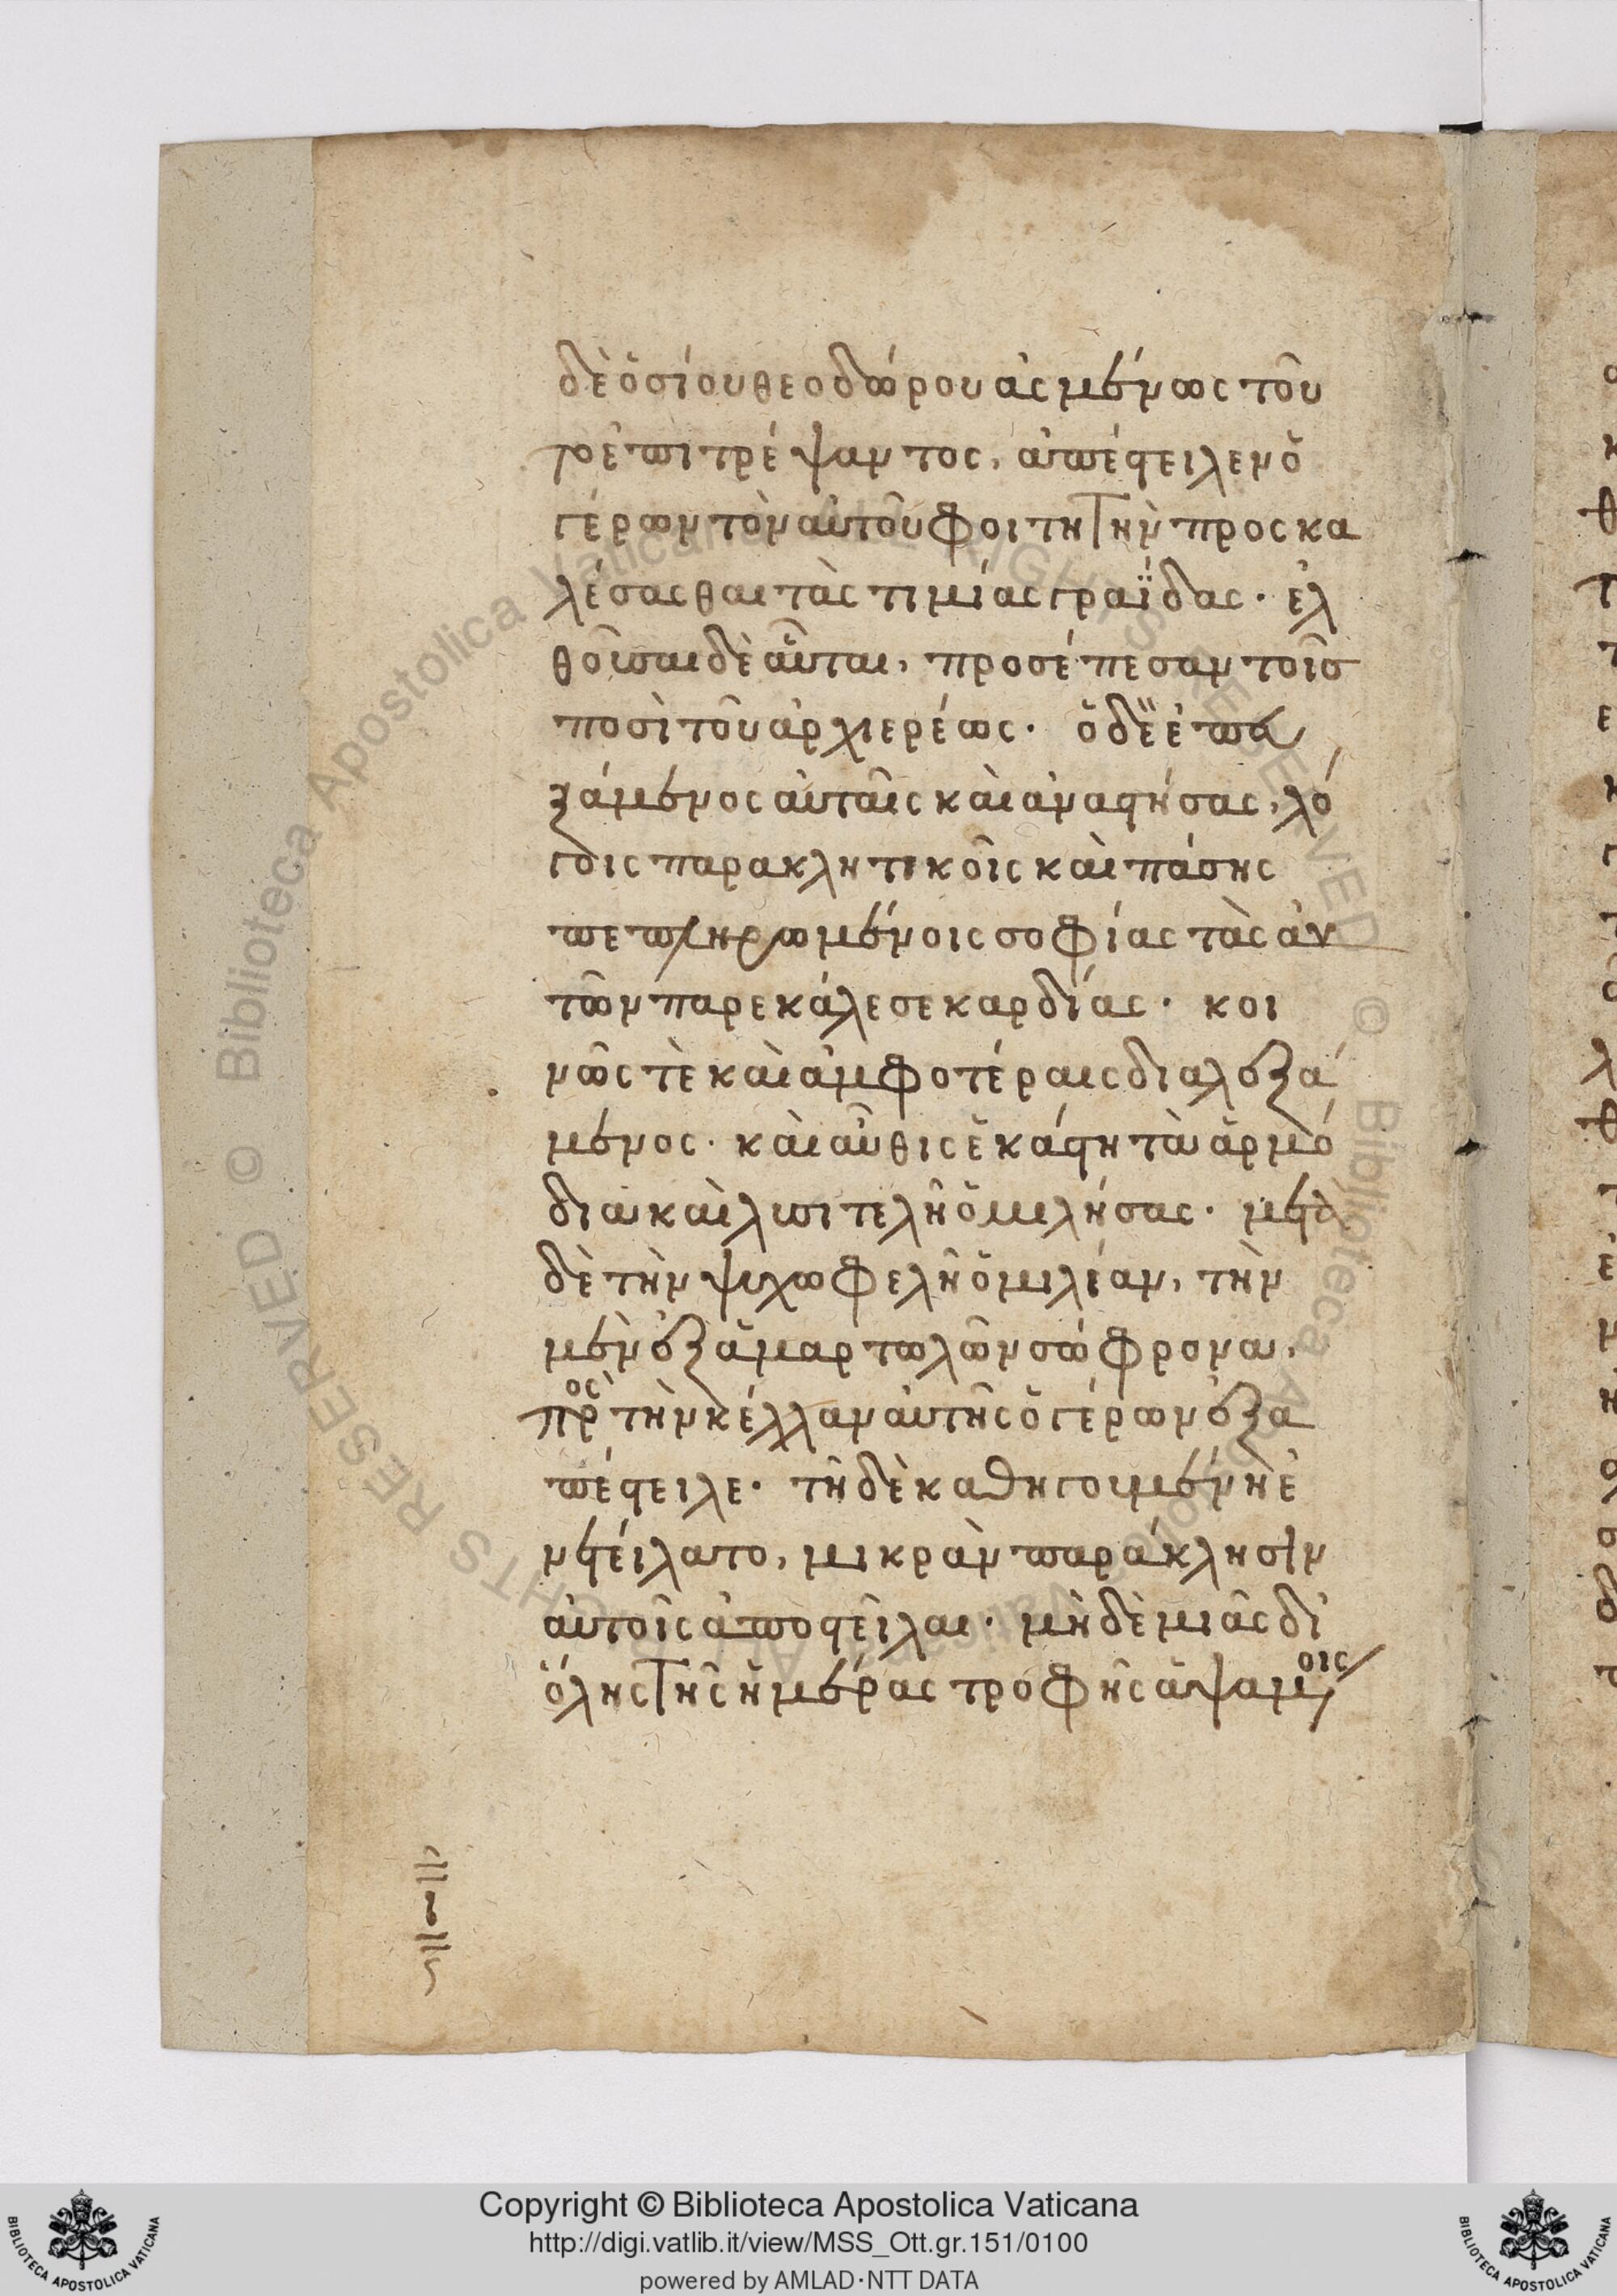 δὲ ὁσίου θεοδώρου ἀσμένως τοῦ
το ἐπιτρέψαντος, ἀπέστειλεν ὁ
γέρων τὸν αὐτοῦ φοιτητὴν προσκα
λέσασθαι τὰς τιμίας γραΐδας· ἐλ
θοῦσαι δὲ αὗται, προσέπεσαν τοῖς
ποσὶ τοῦ ἀρχιερέως· ὁ δὲ
ξάμενος αὐταῖς καὶ ἀναστήσας, λό
γοις παρακλητικοῖς καὶ πάσης
πεπληρωμένοις σοφίας τὰς αὐ
τῶν παρεκάλεσε καρδίας· κοι
νῶς τὲ καὶ ἀμφοτέραις διαλεξά
μενος· καὶ αὖθις ἑκάστη τὰ ἁρμό
δια καὶ λυσιτελῆ ὁμιλήσας· μετὰ
δὲ τὴν ψυχωφελῆ ὁμιλίαν, τὴν
μὲν ἐξ ἁμαρτωλῶν σώφρονα,
πρὸς τὴν κέλλαν αὐτῆς ὁ γέρων ἐξα
πέστειλε· τῆ δὲ καθηγουμένη ἐ
νετείλατο, μικρὰν παράκλησιν
αὐτοῖς ἀποστεῖλαι· μὴ δὲ μιᾶς δι
ὅλης τῆς ἡμέρας τροφῆς ἁψαμένοις
Copyright © Biblioteca Apostolica Vaticana
http://digi.vatlib.it/view/MSS_Ott.gr.151/0100
powered by AMLAD·NTT DATA
BIBLIOTECA APOSTOLICA VATICANA
BIBLIOTECA APOSTOLICA VATICANA